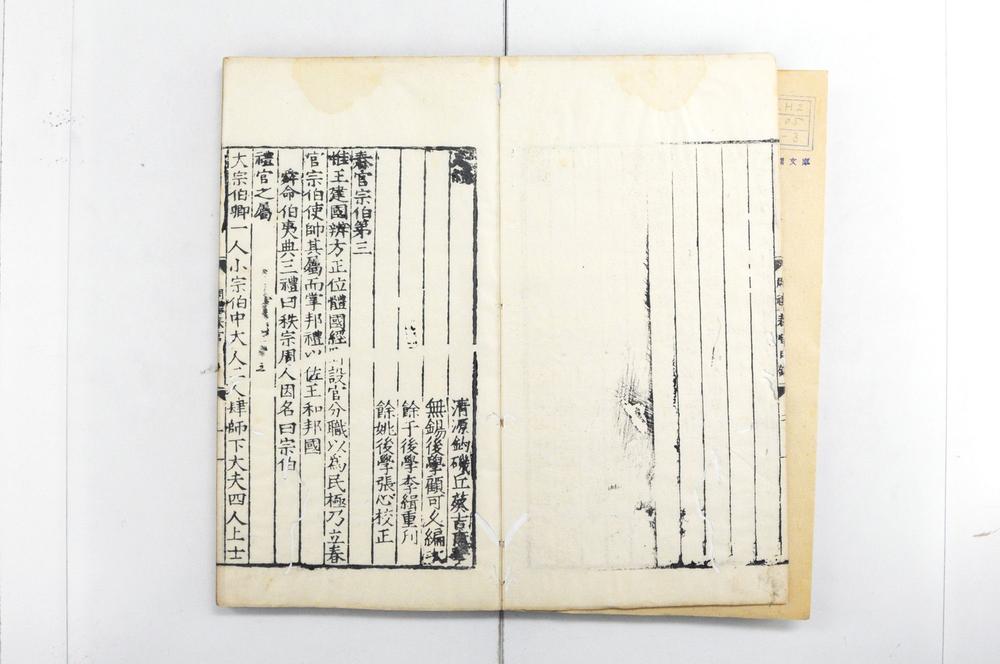 清源釣磯丘葵吉甫學
無錫後學顧可久編次
餘干後學李緝重刋
餘姚後學張心校正
春官宗伯第三
惟王建國辨方正位體國經 設官分職以爲民極乃立春
官宗伯使帥其屬而掌邦禮以佐王和邦國
舜命伯夷典三禮曰秩宗周人因名曰宗伯
禮官之屬
大宗伯卿一人小宗伯中大人二人肆師下大夫四人上士